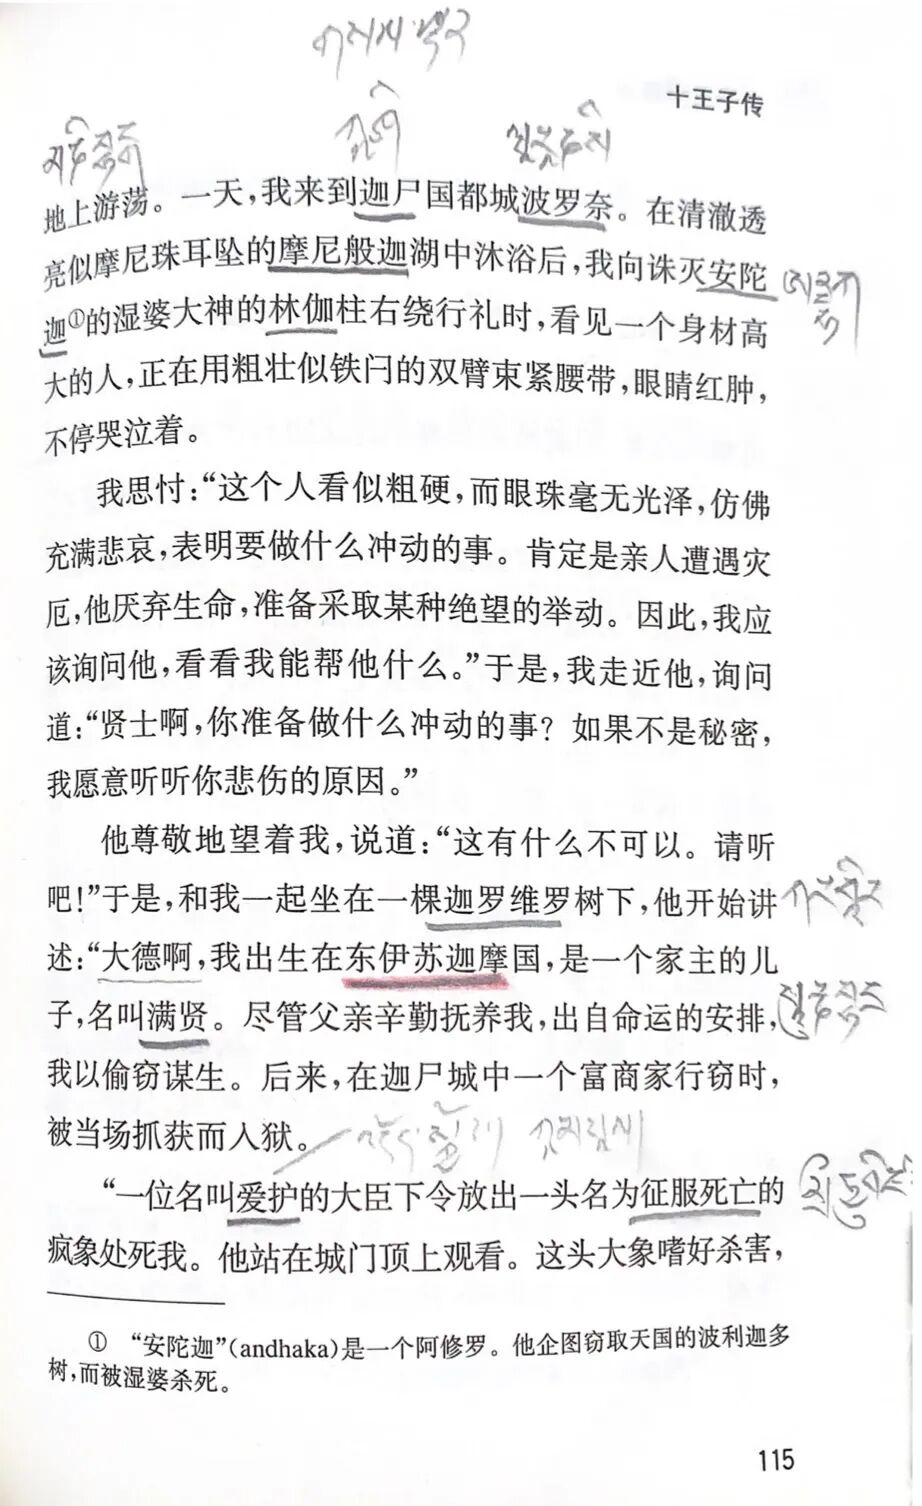 十王子传
地上游荡。一天，我来到迦尸国都城波罗奈。在清澈透
亮似摩尼珠耳坠的摩尼般迦湖中沐浴后，我向诛灭安陀
迦①的湿婆大神的林伽柱右绕行礼时，看见一个身材高
大的人，正在用粗壮似铁闩的双臂束紧腰带，眼睛红肿，
不停哭泣着。
我思忖：“这个人看似粗硬，而眼珠毫无光泽，仿佛
充满悲哀，表明要做什么冲动的事。肯定是亲人遭遇灾
厄，他厌弃生命，准备采取某种绝望的举动。因此，我应
该询问他，看看我能帮他什么。”于是，我走近他，询问
道：“贤士啊，你准备做什么冲动的事？如果不是秘密，
我愿意听听你悲伤的原因。”
他尊敬地望着我，说道：“这有什么不可以。请听
吧！”于是，和我一起坐在一棵迦罗维罗树下，他开始讲
述：“大德啊，我出生在东伊苏迦摩国，是一个家主的儿
子，名叫满贤。尽管父亲辛勤抚养我，出自命运的安排，
我以偷窃谋生。后来，在迦尸城中一个富商家行窃时，
被当场抓获而入狱。
“一位名叫爱护的大臣下令放出一头名为征服死亡的
疯象处死我。他站在城门顶上观看。这头大象嗜好杀害，
① “安陀迦”（andhaka）是一个阿修罗。他企图窃取天国的波利迦多
树，而被湿婆杀死。
115